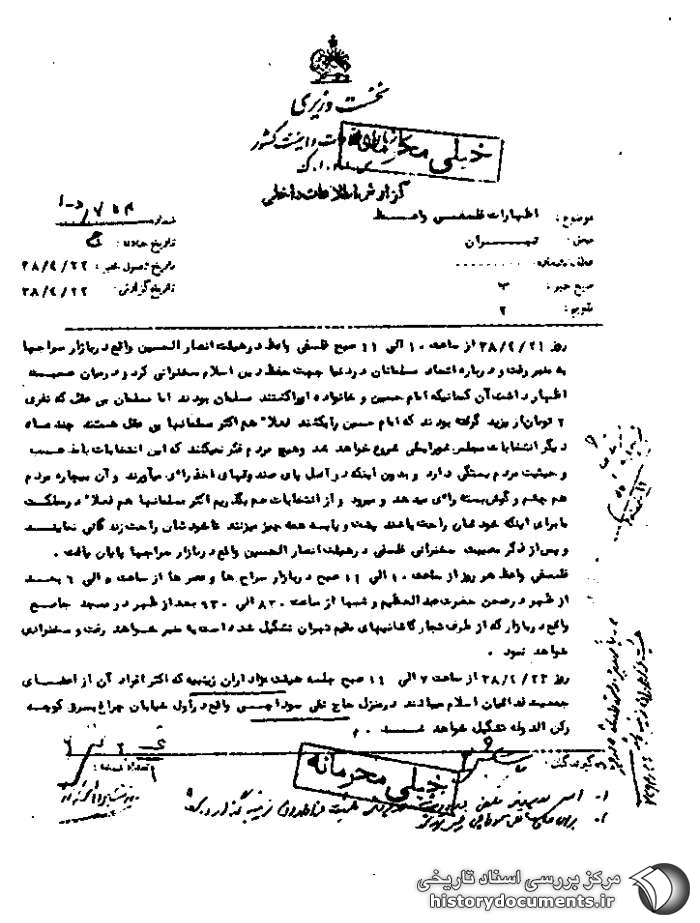 نخست وزیری
سازمان اطلاعات و امنیت کشور
خیلی محرمانه
گزارش اطلاعات داخلی
موضوع: اظهارات فلسفی واعظ
شماره:
محل: تهران
تاریخ حادثه:
تاریخ وصول خبر: ۳۸/۴/۲۲
منبع خبر: ۳
تاریخ گزارش: ۳۸/۴/۲۲
تقویم: ۲
روز ۳۸/۴/۲۱ از ساعت ۱۰ الی ۱۱ صبح فلسفی واعظ در هیئت انصار الحسین واقع در بازار سراجها
به منبر رفت و درباره اتحاد مسلمانان در دنیا جهت حفظ دین اسلام سخنرانی کرد و در میان صحبت
اظهار داشت آن کسانیکه امام حسین و خانواده اورا کشتند مسلمان بودند اما مسلمان بی عقل که نفری
۲ تومان از یزید گرفته بودند که امام حسین را بکشند فعلا هم اکثر مسلمانها بی عقل هستند چند ماه
دیگر انتخابات مجلس شورایملی شروع خواهد شد و هیچ مردم فکر نمیکنند که این انتخابات با مذهب
و حیثیت مردم بستگی دارد و بدون اینکه در اصل پای صندوقهای اخذ رای میآورند و آن بیچاره مردم
هم چشم و گوش بسته رای میدهد و میرود و از انتخابات هم بگذریم اکثر مسلمانها هم فعلا در مملکت
ما برای اینکه خودشان راحت باشند پشت و پا به همه چیز میزنند تا خودشان راحت زندگانی نمایند
و پس از ذکر مصیبت سخنرانی فلسفی در هیئت انصار الحسین واقع در بازار سراجها پایان یافت.
فلسفی واعظ هر روز از ساعت ۱۰ الی ۱۱ صبح در بازار سراج ها و عصر ها از ساعت ۵ الی ۶ بعد
از ظهر در صحن حضرت عبدالعظیم و شبها از ساعت ۸۳۰ الی ۹۳۰ بعد از ظهر در مسجد جامع
واقع در بازار که از طرف تجار کاشانیهای مقیم تهران تشکیل شده است به منبر خواهد رفت و سخنرانی
خواهد نمود.
روز ۳۸/۴/۲۳ از ساعت ۷ الی ۱۱ صبح جلسه هیئت عزاداران زینبیه که اکثر افراد آن از اعضای
جمعیت فدائیان اسلام میباشند در منزل حاج تقی سود اچی واقع در اول خیابان چراغ برق کوچه
رکن الدوله تشکیل خواهد شد. م
گیرندگان:
تعداد نسخه:
خیلی محرمانه
مرکز بررسی اسناد تاریخی
historydocuments.ir